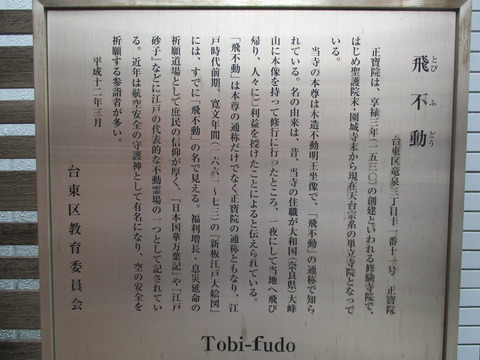 飛不動
とびふどう
台東区竜泉三丁目十一番十一号 正寶院
正寶院は、享禄三年(一五三〇)の創建といわれる修験寺院で、
はじめ聖護院末・園城寺末から現在天台宗系の単立寺院となって
いる。
当寺の本尊は木造不動明王坐像で、「飛不動」の通称で知ら
れている。名の由来は、昔、当寺の住職が大和国(奈良県)大峰
山に本像を持って修行に行ったところ、一夜にして当地へ飛び
帰り、人々にご利益を授けたことによると伝えられている。
「飛不動」は本尊の通称だけでなく正寶院の通称ともなり、江
戸時代前期、寛文年間(一六六一〜七三)の『新板江戸大絵図』
には、すでに「飛不動」の名で見える。福利増長・息災延命の
祈願道場として庶民の信仰が厚く、『日本国華万葉記』や『江戸
砂子』などに江戸の代表的な不動霊場の一つとして記されてい
る。近年は航空安全の守護神として有名になり、空の安全を
祈願する参詣者が多い。
平成十二年三月
台東区教育委員会
Tobi-fudo